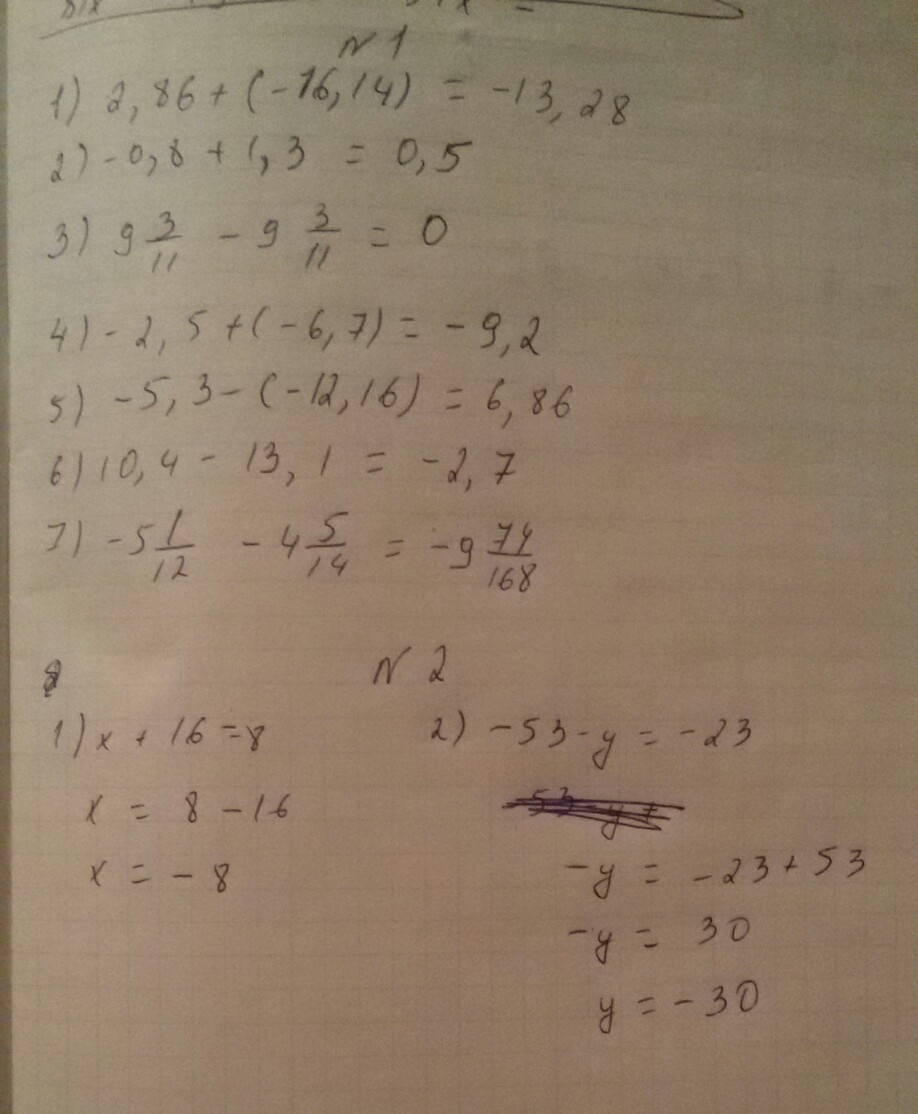 N 1
1) 2,86 + (-16,14) = -13,28
2) -0,8 + 1,3 = 0,5
3) 9 3/11 - 9 3/11 = 0
4) -2,5 + (-6,7) = -9,2
5) -5,3 - (-12,16) = 6,86
6) 10,4 - 13,1 = -2,7
7) -5 1/12 - 4 5/14 = -9 74/168
N 2
1) x + 16 = 8
x = 8 - 16
x = -8
2) -53 - y = -23
-y = -23 + 53
-y = 30
y = -30